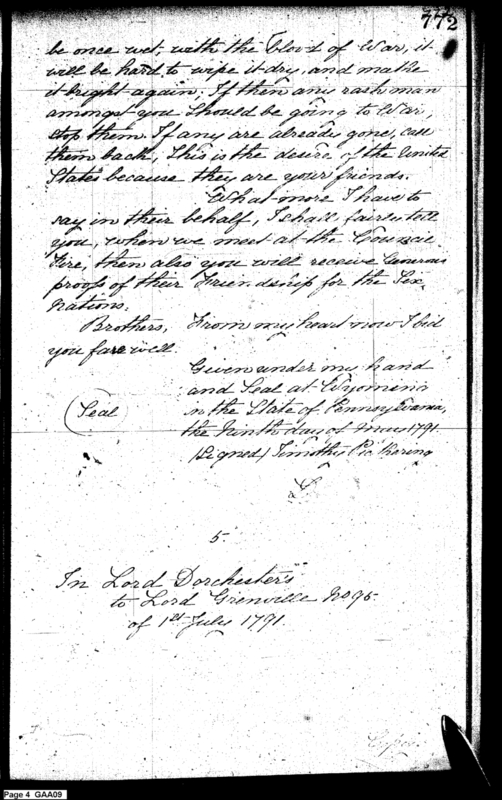 772
be once wet, with the blood of War, it
will be hard to wipe it dry, and make
it bright again; If then any rash man
amongst you should be going to War,
stop them. If any are already gone, call
them back, This is the desire of the United
States because they are your friends.
What more I have to
say in their behalf, I shall fairly tell
you, when we meet at the Council
Fire, then also you will receive
proofs of their Friendship for the Six
Nations.
Brothers, From my heart now I bid
you farewell.
Given under my hand
and Seal at Wyoming
in the State of Pennsylvania,
the Ninth day of 1791.
(Signed) Timothy Pickering
Seal
5.
In Lord Dorchester's
to Lord Grenville No 95
of 1st July 1791.
Page 4 GAA09